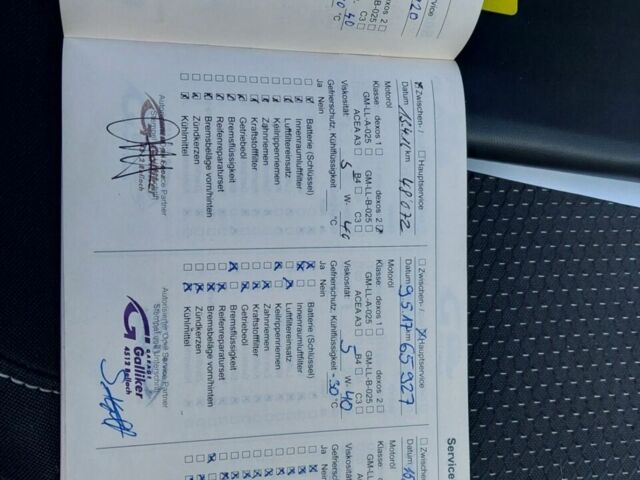 Service
☒ Zwischen- / ☐ Hauptservice
Datum km 48'072
Motoröl
Klasse: dexos 1 ☐ dexos 2 ☑
GM-LL-A-025 ☐ GM-LL-B-025 ☐
ACEA A3 ☐ B4 ☐ C3 ☐
Viskosität: 5 W- 40
Gefrierschutz, Kühlflüssigkeit °C
Ja Nein
Batterie (Schlüssel)
Innenraumluftfilter
Luftfiltereinsatz
Keilrippenriemen
Zahnriemen
Kraftstofffilter
Getriebeöl
Bremsflüssigkeit
Reifenreparaturset
Bremsbeläge vorn/hinten
Zündkerzen
Kühlmittel
☐ Zwischen- / ☒ Hauptservice
Datum 9.5.17 km 65'927
Motoröl
Klasse: dexos 1 ☐ dexos 2 ☐
GM-LL-A-025 ☐ GM-LL-B-025 ☐
ACEA A3 ☐ B4 ☐ C3 ☐
Viskosität: 5 W- 40
Gefrierschutz, Kühlflüssigkeit -30 °C
Ja Nein
Batterie (Schlüssel)
Innenraumluftfilter
Luftfiltereinsatz
Keilrippenriemen
Zahnriemen
Kraftstofffilter
Getriebeöl
Bremsflüssigkeit
Reifenreparaturset
Bremsbeläge vorn/hinten
Zündkerzen
Kühlmittel
Autorisierte Opel Service Partner
Stempel und Unterschrift
GARAGE
Galliker
4512 Bellach